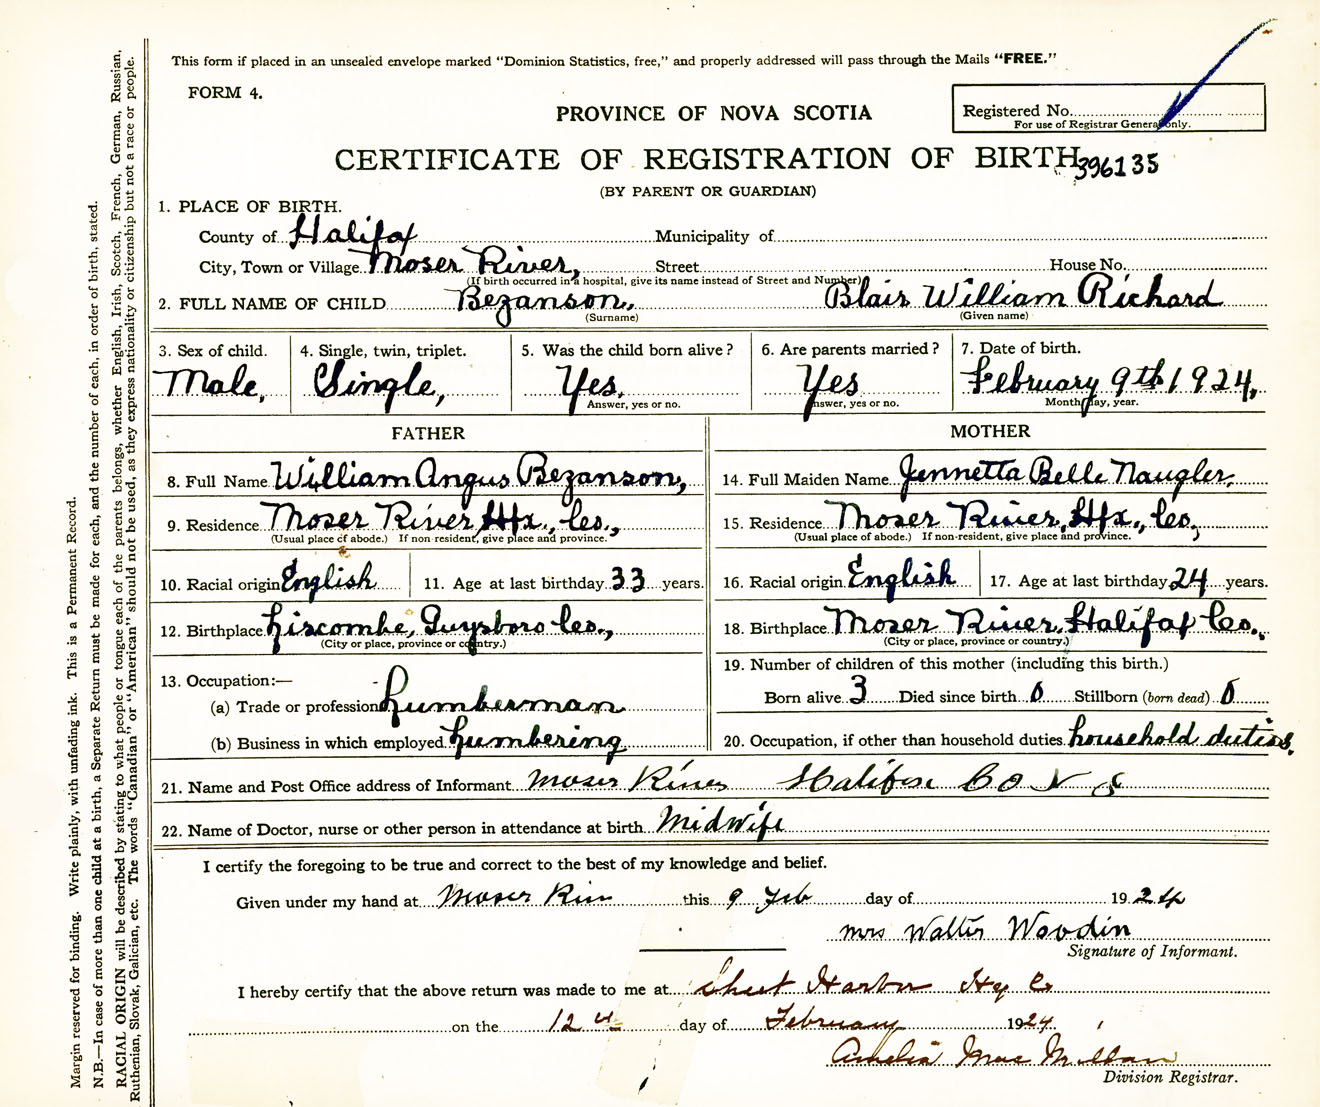 This form if placed in an unsealed envelope marked "Dominion Statistics, free," and properly addressed will pass through the Mails "FREE."
FORM 4.
PROVINCE OF NOVA SCOTIA
Registered No.
For use of Registrar General only.
CERTIFICATE OF REGISTRATION OF BIRTH
396135
(BY PARENT OR GUARDIAN)
1. PLACE OF BIRTH.
County of Halifax Municipality of
City, Town or Village Moser River, Street House No.
(If birth occurred in a hospital, give its name instead of Street and Number)
2. FULL NAME OF CHILD Bezanson, Blair William Richard
(Surname) (Given name)
3. Sex of child. 4. Single, twin, triplet. 5. Was the child born alive? 6. Are parents married? 7. Date of birth.
Male, Single, Yes, Yes February 9th 1924,
Answer, yes or no. Answer, yes or no. Month, day, year.
FATHER MOTHER
8. Full Name William Angus Bezanson, 14. Full Maiden Name Jennetta Belle Naugler,
9. Residence Moser River, Hfx., Co., 15. Residence Moser River, Hfx., Co,
(Usual place of abode.) If non-resident, give place and province. (Usual place of abode.) If non-resident, give place and province.
10. Racial origin English 11. Age at last birthday 33 years. 16. Racial origin English 17. Age at last birthday 24 years.
12. Birthplace Liscombe, Guysboro Co., 18. Birthplace Moser River, Halifax Co.,
(City or place, province or country.) (City or place, province or country.)
13. Occupation:— 19. Number of children of this mother (including this birth.)
(a) Trade or profession Lumberman Born alive 3 Died since birth 0 Stillborn (born dead) 0
(b) Business in which employed Lumbering 20. Occupation, if other than household duties household duties.
21. Name and Post Office address of Informant Moser River Halifax Co N S
22. Name of Doctor, nurse or other person in attendance at birth Midwife
I certify the foregoing to be true and correct to the best of my knowledge and belief.
Given under my hand at Moser Riv this 9 Feb day of 1924
Mrs Walter Woodin
Signature of Informant.
I hereby certify that the above return was made to me at Sheet Harbor Hx Co
on the 12th day of February 1924
Amelia MacMillan
Division Registrar.
Margin reserved for binding. Write plainly, with unfading ink. This is a Permanent Record.
N.B.—In case of more than one child at a birth, a Separate Return must be made for each, and the number of each, in order of birth, stated.
RACIAL ORIGIN will be described by stating to what people or tongue each of the parents belongs, whether English, Irish, Scotch, French, German, Russian,
Ruthenian, Slovak, Galician, etc. The words "Canadian" or "American" should not be used, as they express nationality or citizenship but not a race or people.